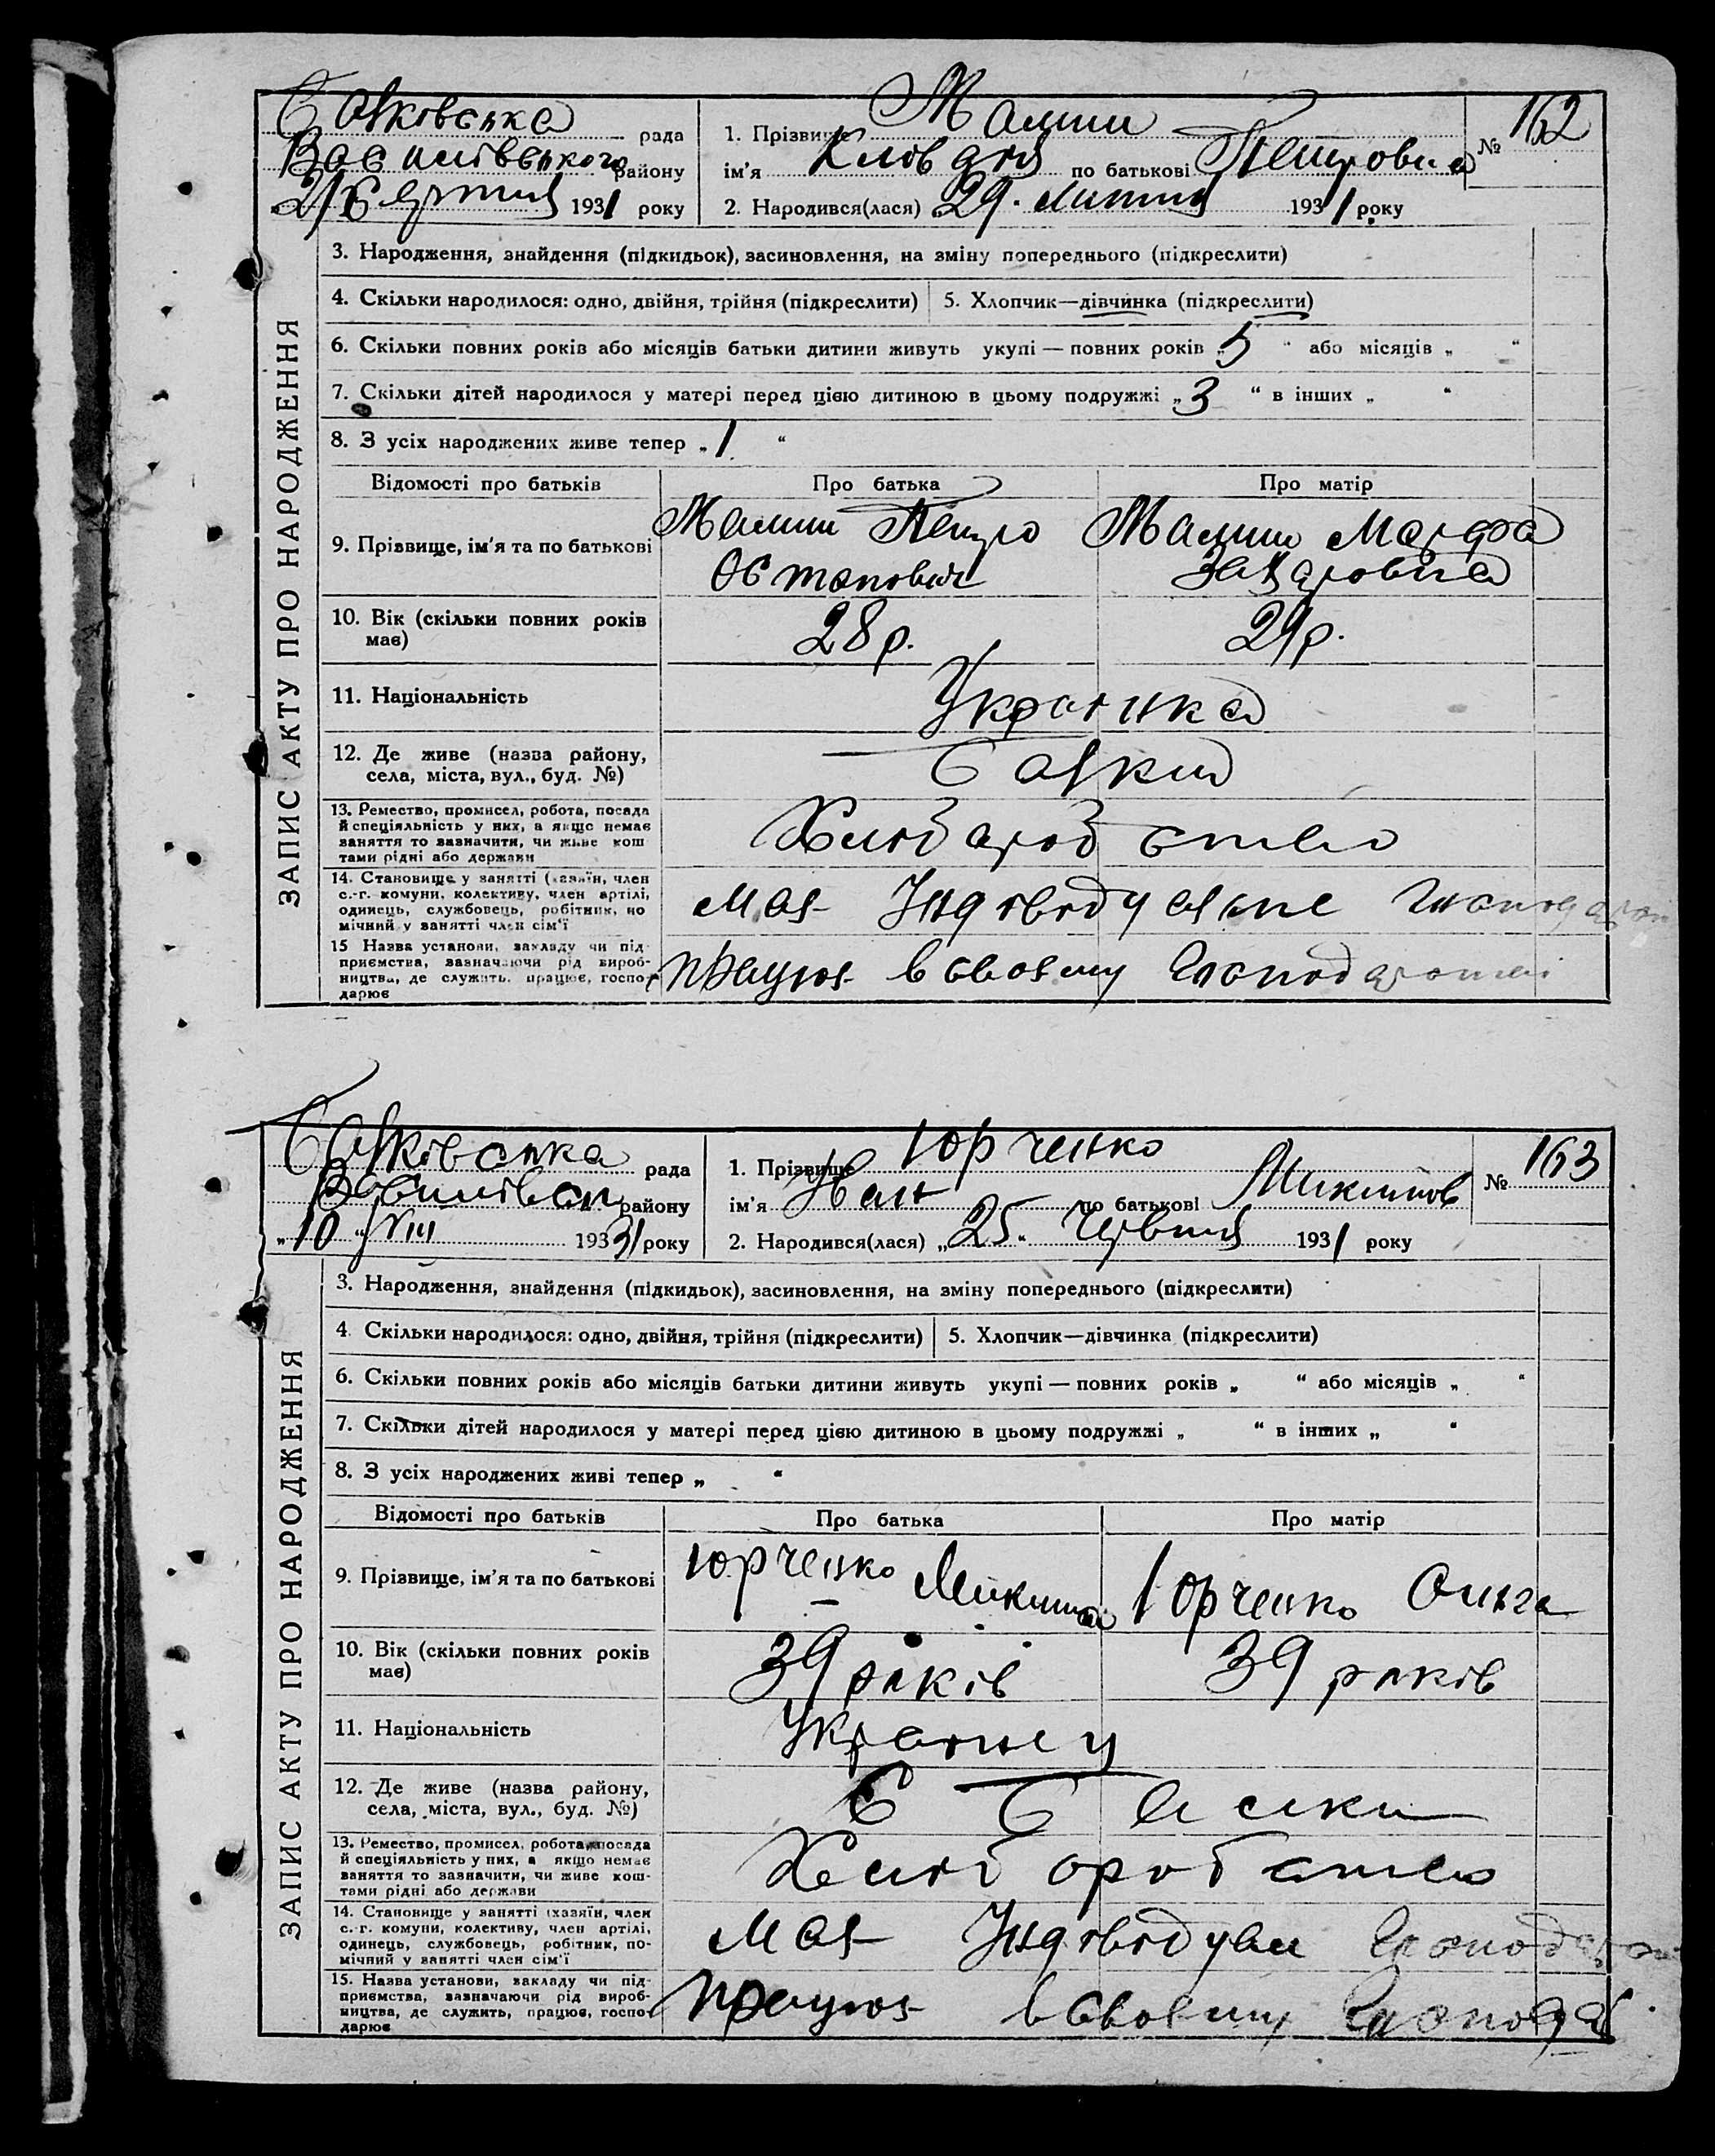 Балківська рада
Василівського району
"21" Серпня 1931 року
1. Прізвище Малиш
ім'я Клавдія по батькові Петровна
2. Народився(лася) "29" Липня 1931 року
№ 162
ЗАПИС АКТУ ПРО НАРОДЖЕННЯ
3. Народження, знайдення (підкидьок), засиновлення, на зміну попереднього (підкреслити)
4. Скільки народилося: одно, двійня, трійня (підкреслити) 5. Хлопчик—дівчинка (підкреслити)
6. Скільки повних років або місяців батьки дитини живуть укупі — повних років „5“ або місяців „ “
7. Скільки дітей народилося у матері перед цією дитиною в цьому подружжі „3“ в інших „ “
8. З усіх народжених живе тепер „1“
Відомості про батьків Про батька Про матір
9. Прізвище, ім'я та по батькові Малиш Петро Малиш Марфа
Остапович Захаровна
10. Вік (скільки повних років
має) 28 р. 29 р.
11. Національність Украінка
12. Де живе (назва району,
села, міста, вул., буд. №) Балки
13. Ремество, промисел, робота, посада
й спеціяльність у них, а якщо немає
заняття то зазначити, чи живе кош
тами рідні або держави Хліборобство
14. Становище у занятті (хазяїн, член
с.-г. комуни, колективу, член артілі,
одинець, службовець, робітник, по
мічний у занятті член сім'ї має
15 Назва установи, закладу чи під-
приємства, зазначаючи рід вироб-
ництва, де служить, працює, госпо-
дарює працює в своєму господарстві
Балківська рада
району
„10“ VIII 1931 року
1. Прізвище Юрченко
ім'я Іван по батькові
2. Народився(лася) „25“ Червня 1931 року
№ 163
ЗАПИС АКТУ ПРО НАРОДЖЕННЯ
3. Народження, знайдення (підкидьок), засиновлення, на зміну попереднього (підкреслити)
4. Скільки народилося: одно, двійня, трійня (підкреслити) 5. Хлопчик—дівчинка (підкреслити)
6. Скільки повних років або місяців батьки дитини живуть укупі — повних років „ “ або місяців „ “
7. Скільки дітей народилося у матері перед цією дитиною в цьому подружжі „ “ в інших „ “
8. З усіх народжених живі тепер „ “
Відомості про батьків Про батька Про матір
9. Прізвище, ім'я та по батькові Юрченко Юрченко Ольга
10. Вік (скільки повних років
має) 39 років 39 років
11. Національність Украінец
12. Де живе (назва району,
села, міста, вул., буд. №) С Балки
13. Ремество, промисел, робота, посада
й спеціяльність у них, а якщо немає
заняття то зазначити, чи живе кош-
тами рідні або держави Хліборобство
14. Становище у занятті (хазяїн, член
с.-г. комуни, колективу, член артілі,
одинець, службовець, робітник, по-
мічний у занятті член сім'ї має
15. Назва установи, закладу чи під-
приємства, зазначаючи рід вироб-
ництва, де служить, працює, госпо-
дарює працює в своєму